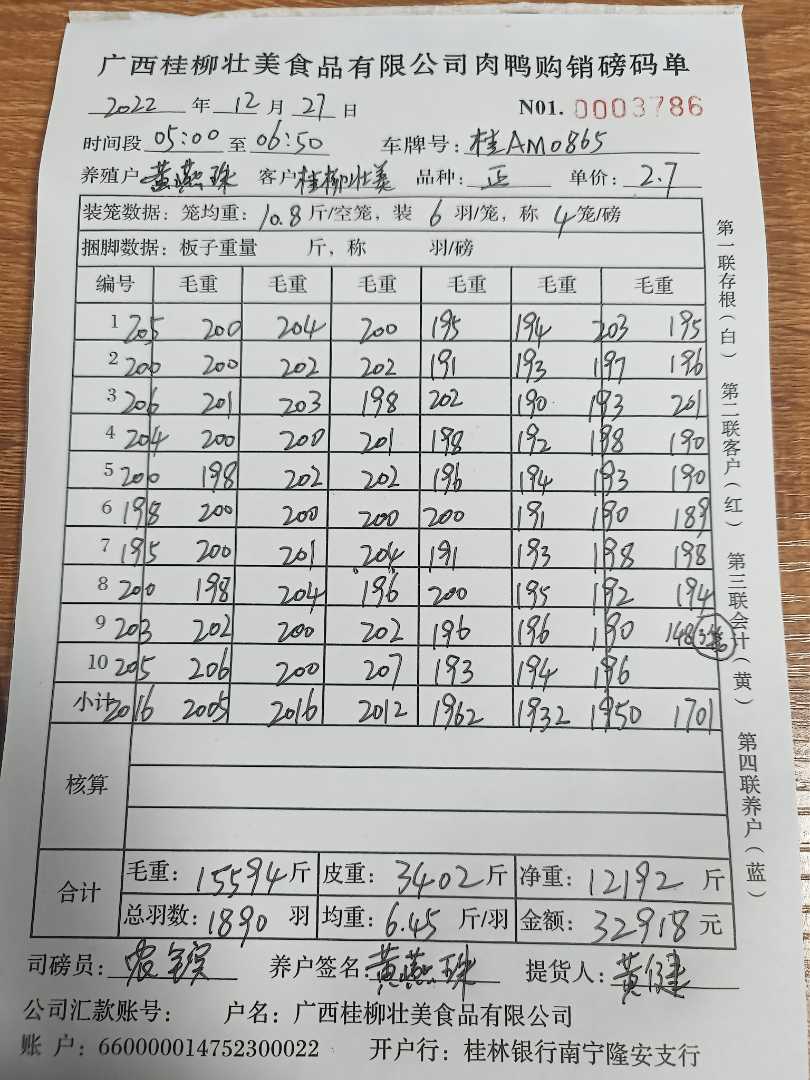 广西桂柳壮美食品有限公司肉鸭购销磅码单
2022 年 12 月 27 日 N01. 0003786
时间段 05:00 至 06:50 车牌号: 桂AM0865
养殖户 黄燕珠 客户 桂柳壮美 品种: 正 单价: 2.7
装笼数据: 笼均重: 10.8 斤/空笼, 装 6 羽/笼, 称 4 笼/磅
捆脚数据: 板子重量 斤, 称 羽/磅
编号 毛重 毛重 毛重 毛重 毛重 毛重
1 205 200 204 200 195 194 203 195
2 200 200 202 202 191 193 197 196
3 206 201 203 198 202 190 193 201
4 204 200 200 201 198 192 198 190
5 200 198 202 202 196 194 193 190
6 198 200 200 200 200 191 190 189
7 195 200 201 204 191 193 198 198
8 200 198 204 196 200 195 192 194
9 203 202 200 202 196 196 190 148 3笼
10 205 206 200 207 193 194 196
小计 2016 2005 2016 2012 1962 1932 1950 1701
核算
合计
毛重: 15594 斤 皮重: 3402 斤 净重: 12192 斤
总羽数: 1890 羽 均重: 6.45 斤/羽 金额: 32918 元
司磅员: 养户签名: 黄燕珠 提货人: 黄健
公司汇款账号: 户名: 广西桂柳壮美食品有限公司
账 户: 660000014752300022 开户行: 桂林银行南宁隆安支行
第一联存根(白) 第二联客户(红) 第三联会计(黄) 第四联养户(蓝)